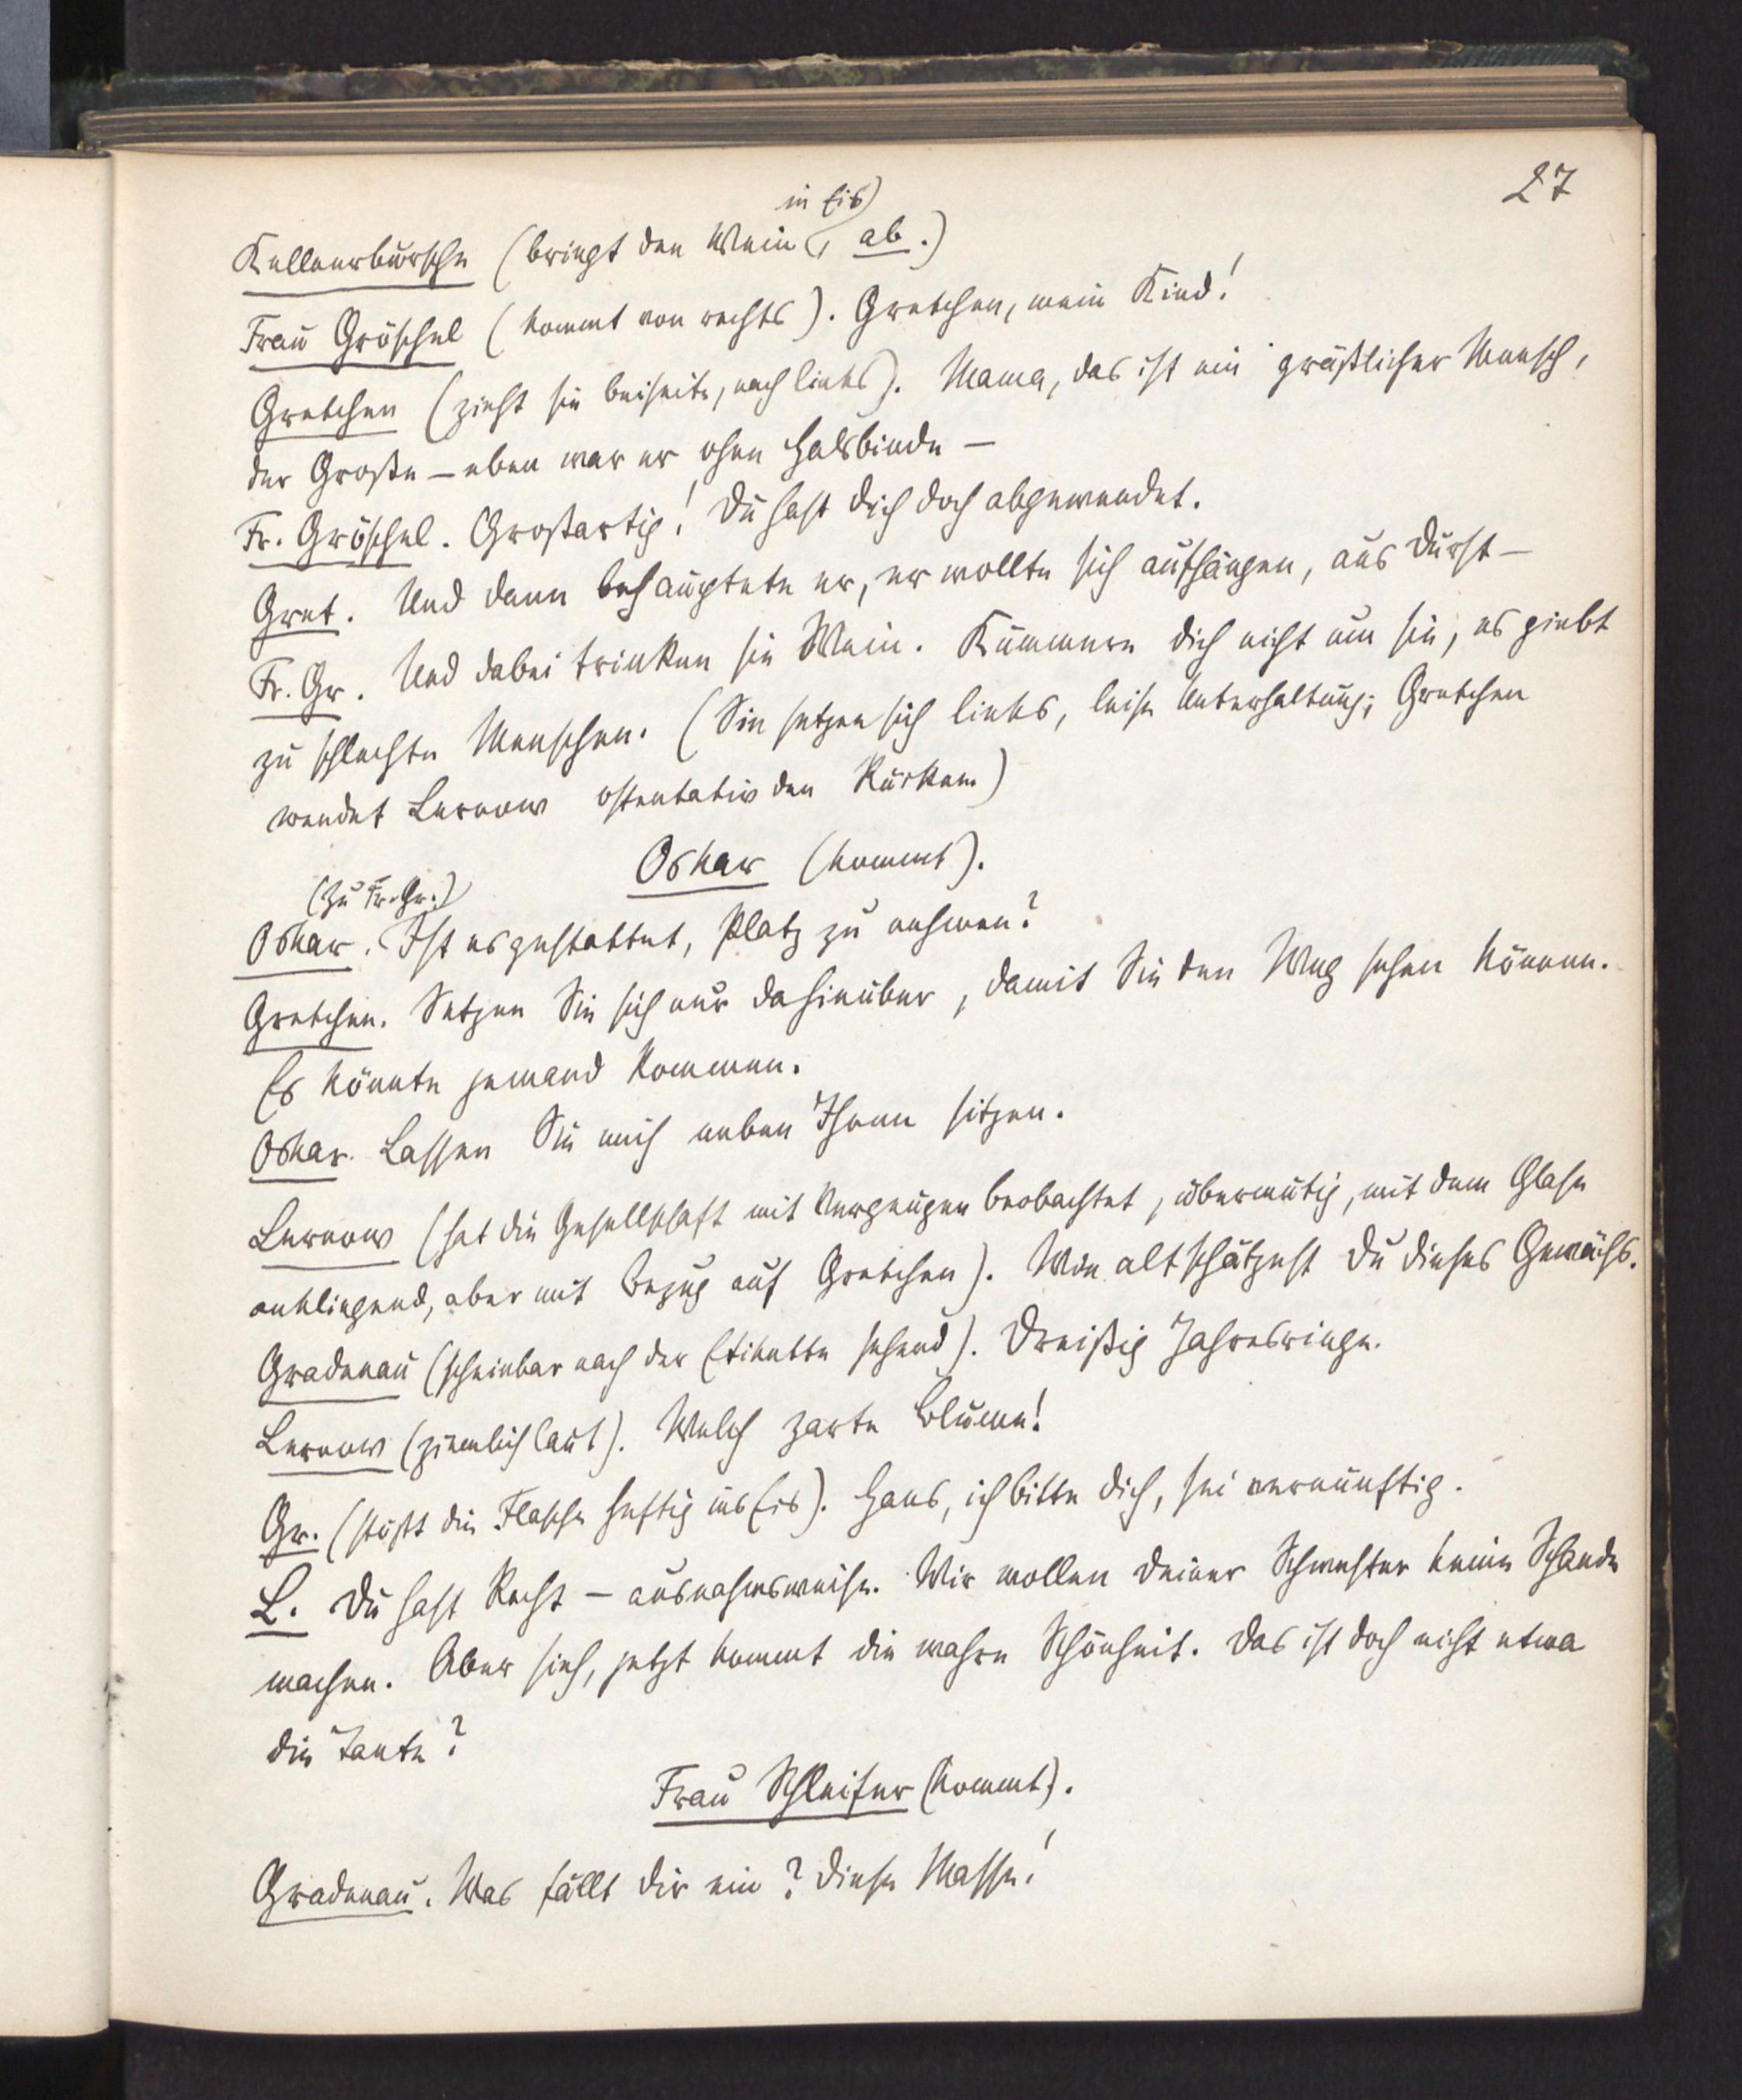 27
in Eis)
Kellnerbursche (bringt den Wein, ab.)
Frau Gröschel (kommt von rechts). Gretchen, mein Kind!
Gretchen (zieht sie beiseite, nach links). Mama, das ist ein gräßlicher Mensch,
der Große – eben war er ohne Halsbinde –
Fr. Gröschel. Großartig! Du hast dich doch abgewendet.
Gret. Und dann behauptete er, er wollte sich aufhängen, aus Durst –
Fr. Gr. Und dabei trinken sie Wein. Kümmere dich nicht um sie, es giebt
zu schlechte Menschen. (Sie setzen sich links, leise Unterhaltung; Gretchen
wendet Lernow ostentativ den Rücken)
Oskar (kommt).
(Zu Fr. Gr.)
Oskar. Ist es gestattet, Platz zu nehmen?
Gretchen. Setzen Sie sich nur dahinüber, damit Sie den Weg sehen können.
Es könnte jemand kommen.
Oskar. Lassen Sie mich neben Ihnen sitzen.
Lernow (hat die Gesellschaft mit Vergnügen beobachtet, übermütig, mit dem Glase
anklingend, aber mit Bezug auf Gretchen). Wie alt schätzest Du dieses Gewächs.
Gradenau (scheinbar nach der Etikette sehend). Dreißig Jahresringe.
Lernow (ziemlich laut). Welch zarte Blume!
Gr. (stößt die Flasche heftig ins Eis). Hans, ich bitte dich, sei vernünftig.
L. Du hast Recht – ausnahmsweise. Wir wollen deiner Schwester keine Schande
machen. Aber sieh, jetzt kommt die wahre Schönheit. Das ist doch nicht etwa
die Tante?
Frau Schleifer (kommt).
Gradenau. Was fällt dir ein? Diese Masse!